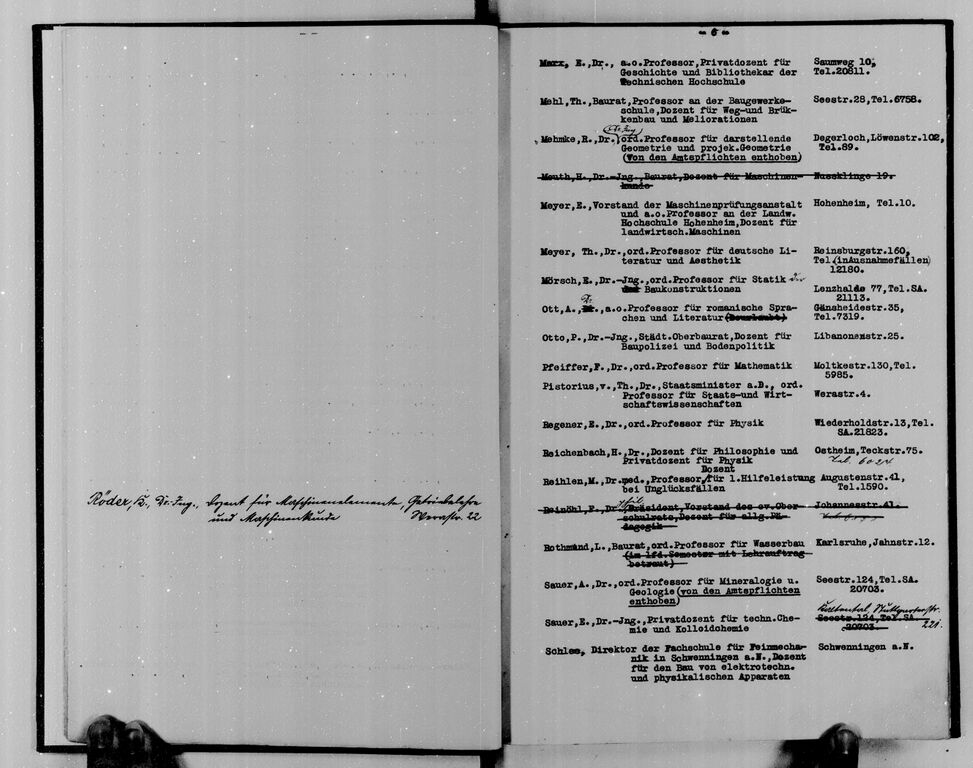 Röder, B., Dr.-Ing., Dozent für Maschinenelemente, Getriebelehre
und Maschinenkunde Werastr. 22
- 6 -
Marx, E.,Dr., a.o.Professor,Privatdozent für Saumweg 10,
Geschichte und Bibliothekar der Tel.20811.
Technischen Hochschule
Mehl,Th.,Baurat,Professor an der Baugewerke- Seestr.28,Tel.6758.
schule,Dozent für Weg-und Brük-
kenbau und Meliorationen
Mehmke,R.,Dr.,ord.Professor für darstellende Degerloch,Löwenstr.102,
Geometrie und projek.Geometrie Tel.89.
(von den Amtspflichten enthoben)
Meuth,H.,Dr.-Jng.,Baurat,Dozent für Maschinen- Nussklinge 19.
kunde
Meyer,E.,Vorstand der Maschinenprüfungsanstalt Hohenheim, Tel.10.
und a.o.Professor an der Landw.
Hochschule Hohenheim,Dozent für
landwirtsch.Maschinen
Meyer, Th.,Dr.,ord.Professor für deutsche Li- Reinsburgstr.160,
teratur und Aesthetik Tel.(inAusnahmefällen)
12180.
Mörsch,E.,Dr.-Jng.,ord.Professor für Statik der
Baukonstruktionen Lenzhalde 77,Tel.SA.
21113.
Ott,A.,Dr.,a.o.Professor für romanische Spra- Gänsheidestr.35,
chen und Literatur(Beurlaubt) Tel.7319.
Otto,P.,Dr.-Jng.,Städt.Oberbaurat,Dozent für Libanonenstr.25.
Baupolizei und Bodenpolitik
Pfeiffer,F.,Dr.,ord.Professor für Mathematik Moltkestr.130,Tel.
5985.
Pistorius,v.,Th.,Dr.,Staatsminister a.D., ord.
Professor für Staats-und Wirt- Werastr.4.
schaftswissenschaften
Regener,E.,Dr.,ord.Professor für Physik Wiederholdstr.13,Tel.
SA.21823.
Reichenbach,H.,Dr.,Dozent für Philosophie und Ostheim,Teckstr.75.
Privatdozent für Physik Tel. 6024
Dozent
Reihlen,M.,Dr.med.,Professor,für 1.Hilfeleistung Augustenstr.41,
bei Unglücksfällen Tel.1590.
Reinöhl,F.,Dr.,Präsident,Vorstand des ev.Ober- Johannesstr.41.
schulrats,Dozent für allg.Pä-
dagogik
Rothmund,L.,Baurat,ord.Professor für Wasserbau Karlsruhe,Jahnstr.12.
(im lfd.Semester mit Lehrauftrag
betraut)
Sauer,A.,Dr.,ord.Professor für Mineralogie u. Seestr.124,Tel.SA.
Geologie(von den Amtspflichten 20703.
enthoben)
Kaltental, Stuttgarterstr.
Sauer,E.,Dr.-Jng.,Privatdozent für techn.Che- Seestr.124,Tel.SA 221.
mie und Kolloidchemie 20703.
Schlee, Direktor der Fachschule für Feinmecha- Schwenningen a.N.
nik in Schwenningen a.N.,Dozent
für den Bau von elektrotechn.
und physikalischen Apparaten